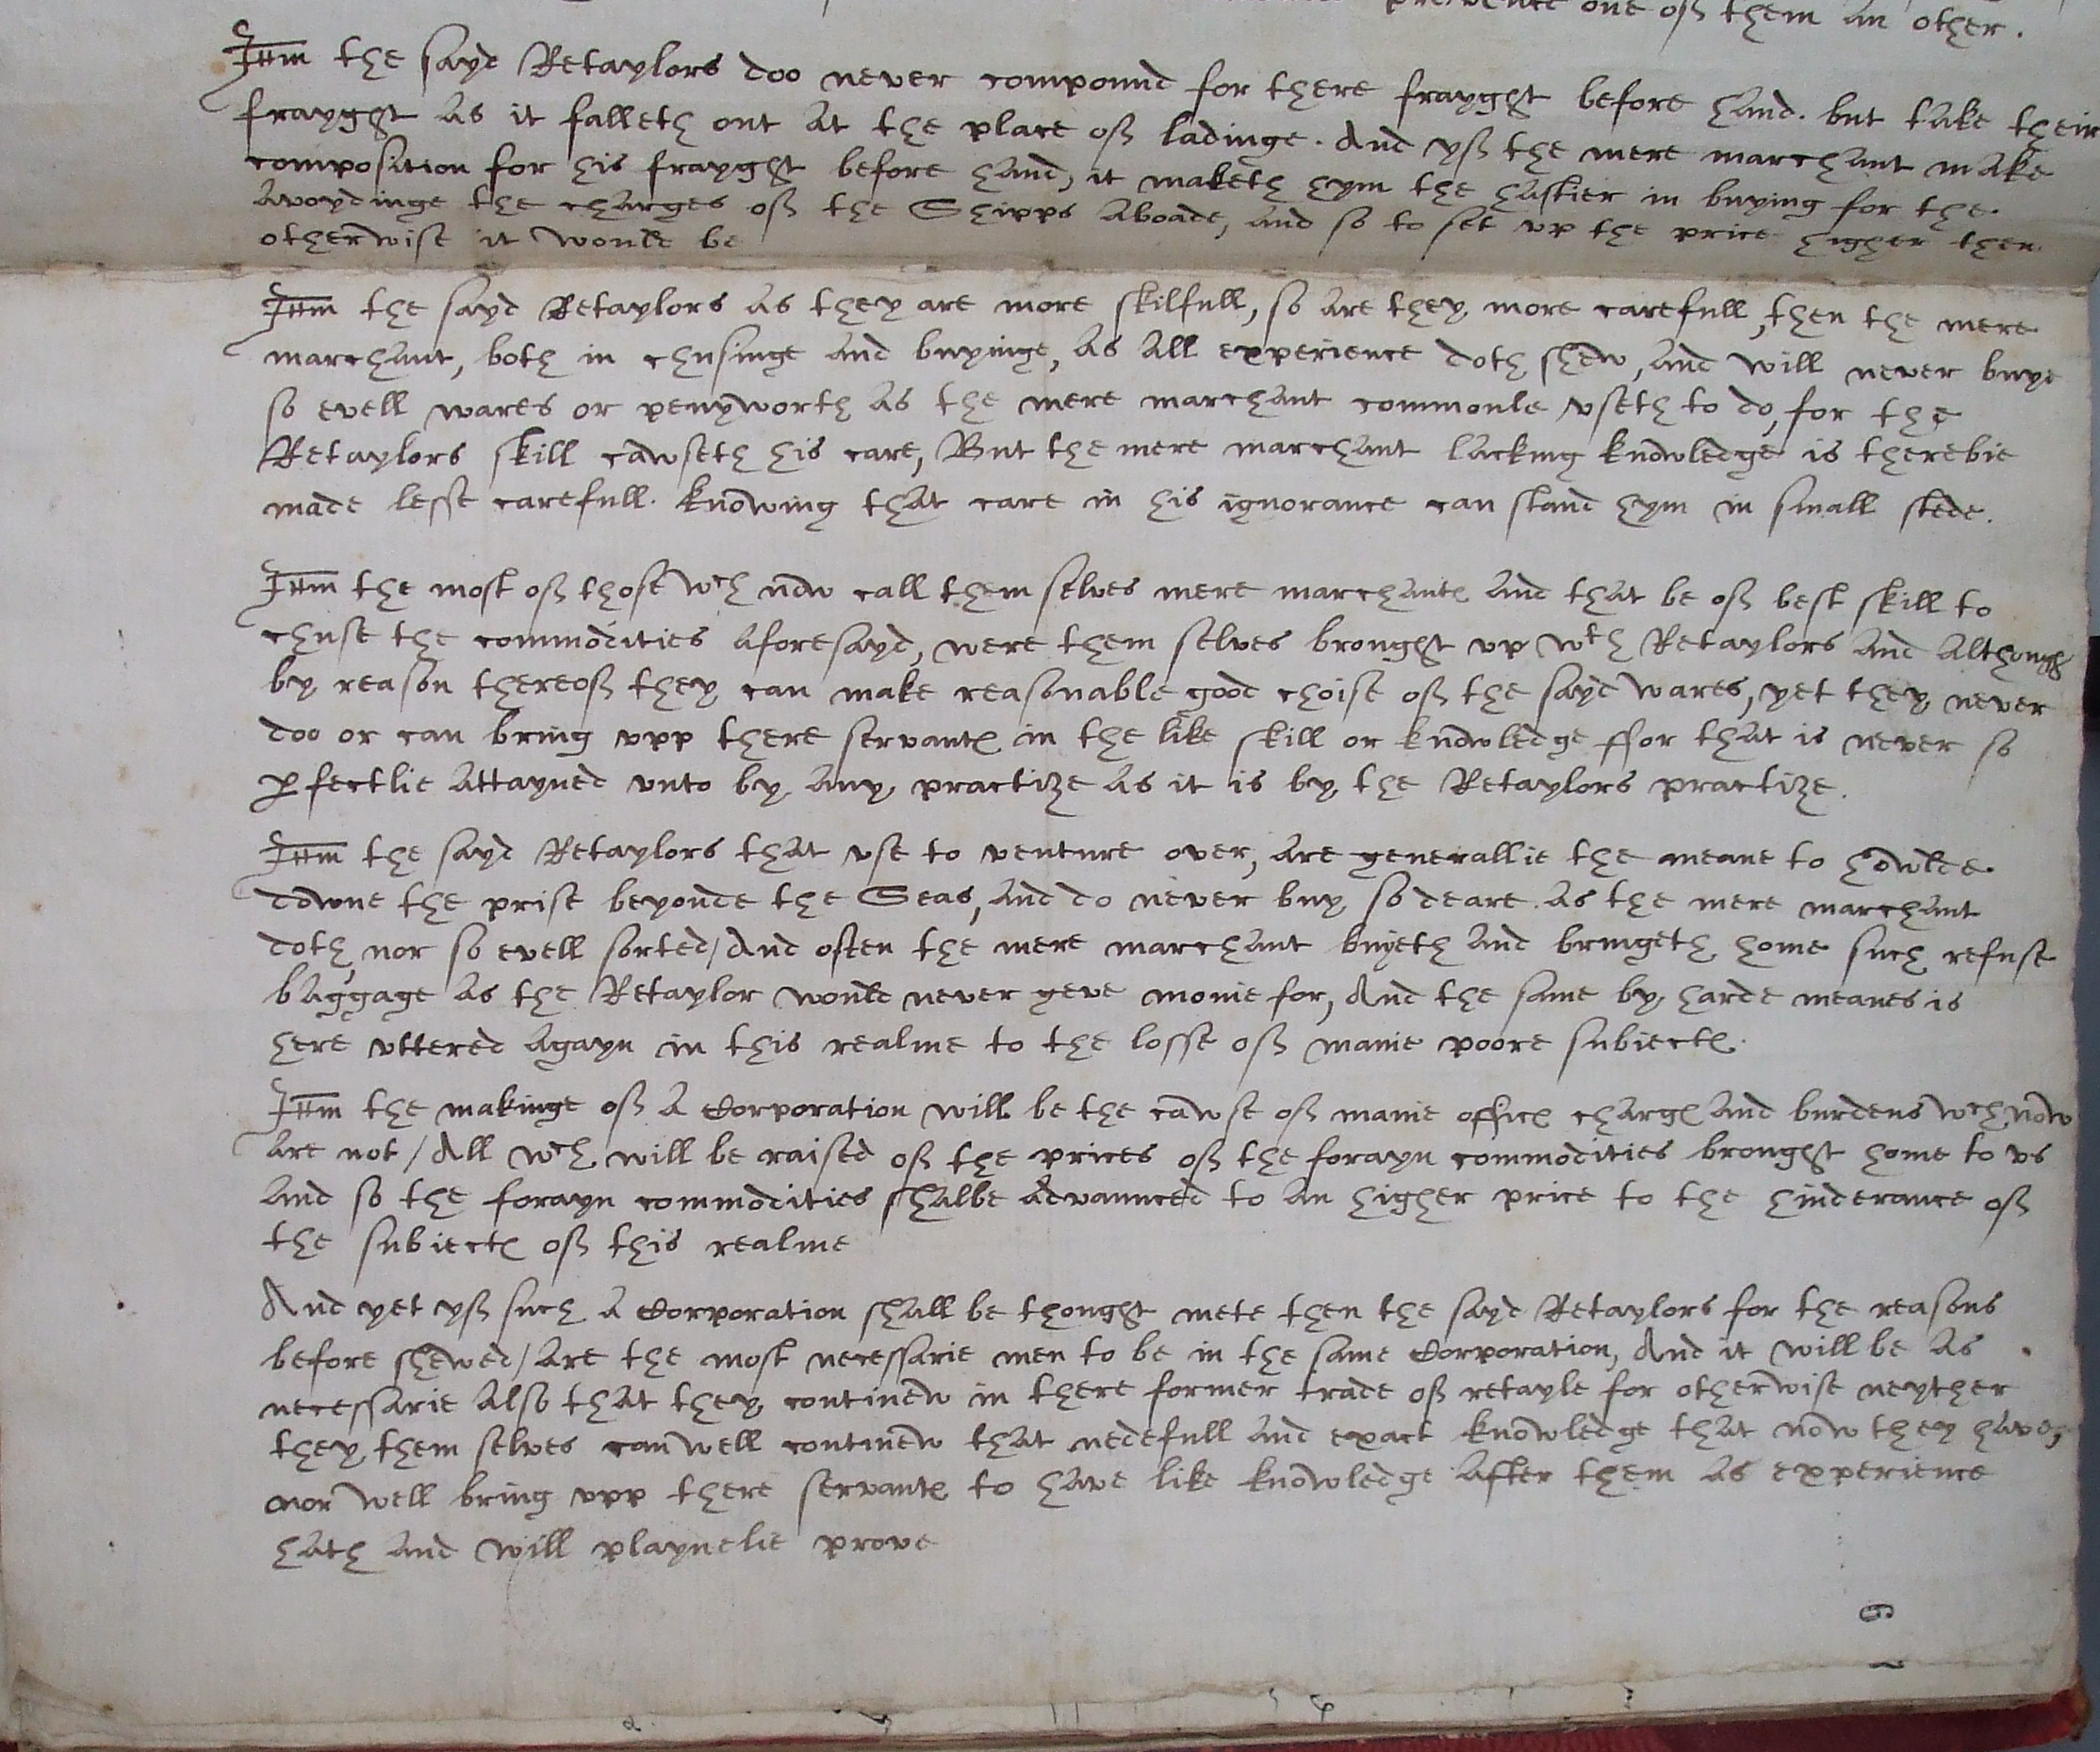 one off them an other.
Itm the sayd Retaylors doo never compound for there frayght before hand. but take their
frayght as it falleth out at the place off ladinge. And yff the mere marchant make
composition for his frayght before hand, it maketh hym the hastier in buying for the
avoydinge the charges off the Shipps aboade, and so to set up the price higher then
otherwise it would be
Itm the sayd Retaylors as they are more skilfull, so are they more carefull, then the mere
marchant, both in chusinge and buyinge, as all experience doth shew, and will never buye
so evell wares or penyworth as the mere marchant commonle useth to do, for the
Retaylors skill cawseth his care, But the mere marchant lacking knowledge is therebie
made lesse carefull. knowing that care in his ignorance can stand hym in small stede.
Itm the most off those wch now call them selves mere marchantes and that be off best skill to
chuse the commodities aforesayd, were them selves brought up wth Retaylors and although
by reason thereoff they can make reasonable good choise off the sayd wares, yet they never
doo or can bring upp there servantes in the like skill or knowledge ffor that is never so
pfectlie attayned unto by any practize as it is by the Retaylors practize.
Itm the sayd Retaylors that use to venture over, are generallie the meane to howlde
downe the prise beyonde the Seas, and do never buy so deare as the mere marchant
doth, nor so evell sorted / And often the mere marchant buyeth and bringeth home such refuse
baggage as the Retaylor would never geve monie for, And the same by harde meanes is
here uttered agayn in this realme to the losse off manie poore subiectes.
Itm the makinge off a Corporation will be the cawse off manie offices charges and burdens wch now
are not / All wch will be raised off the prices off the forayn commodities brought home to us
and so the forayn commodities shalbe advaunced to an higher price to the hinderance off
the subiectes off this realme
And yet yff such a Corporation shall be thought mete then the sayd Retaylors for the reasons
before shewed / are the most necessarie men to be in the same Corporation, And it will be as
necessarie also that they continew in there former trade off retayle for otherwise neyther
they them selves can well continew that nedefull and exact knowledge that now they have,
nor well bring upp there servantes to have like knowledge after them as experience
hath and will playnelie prove